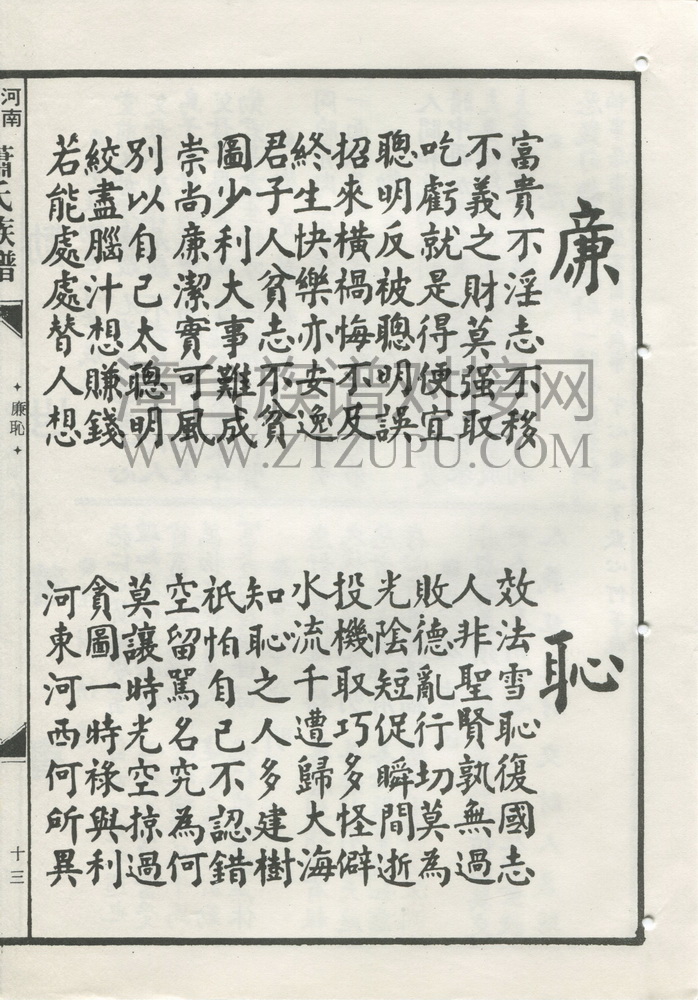 廉
富貴不淫志不移
不義之財莫强取
吃虧就是得便宜
聰明反被聰明誤
招來橫禍悔不及
終生快樂亦安逸
君子人貧志不貧
圖少利大事難成
崇尚廉潔實可風
別以自己太聰明
絞盡腦汁想賺錢
若能處處替人想
恥
效法雪恥復國志
人非聖賢孰無過
敗德亂行切莫為
光陰短促瞬間逝
投機取巧多怪僻
水流千遭歸大海
知恥之人多建樹
祇怕自己不認錯
空留罵名究為何
莫讓時光空掠過
貪圖一時祿與利
河東河西何所異
河南
蕭氏族譜
廉恥
十三
WWW.ZTZUPU.COM